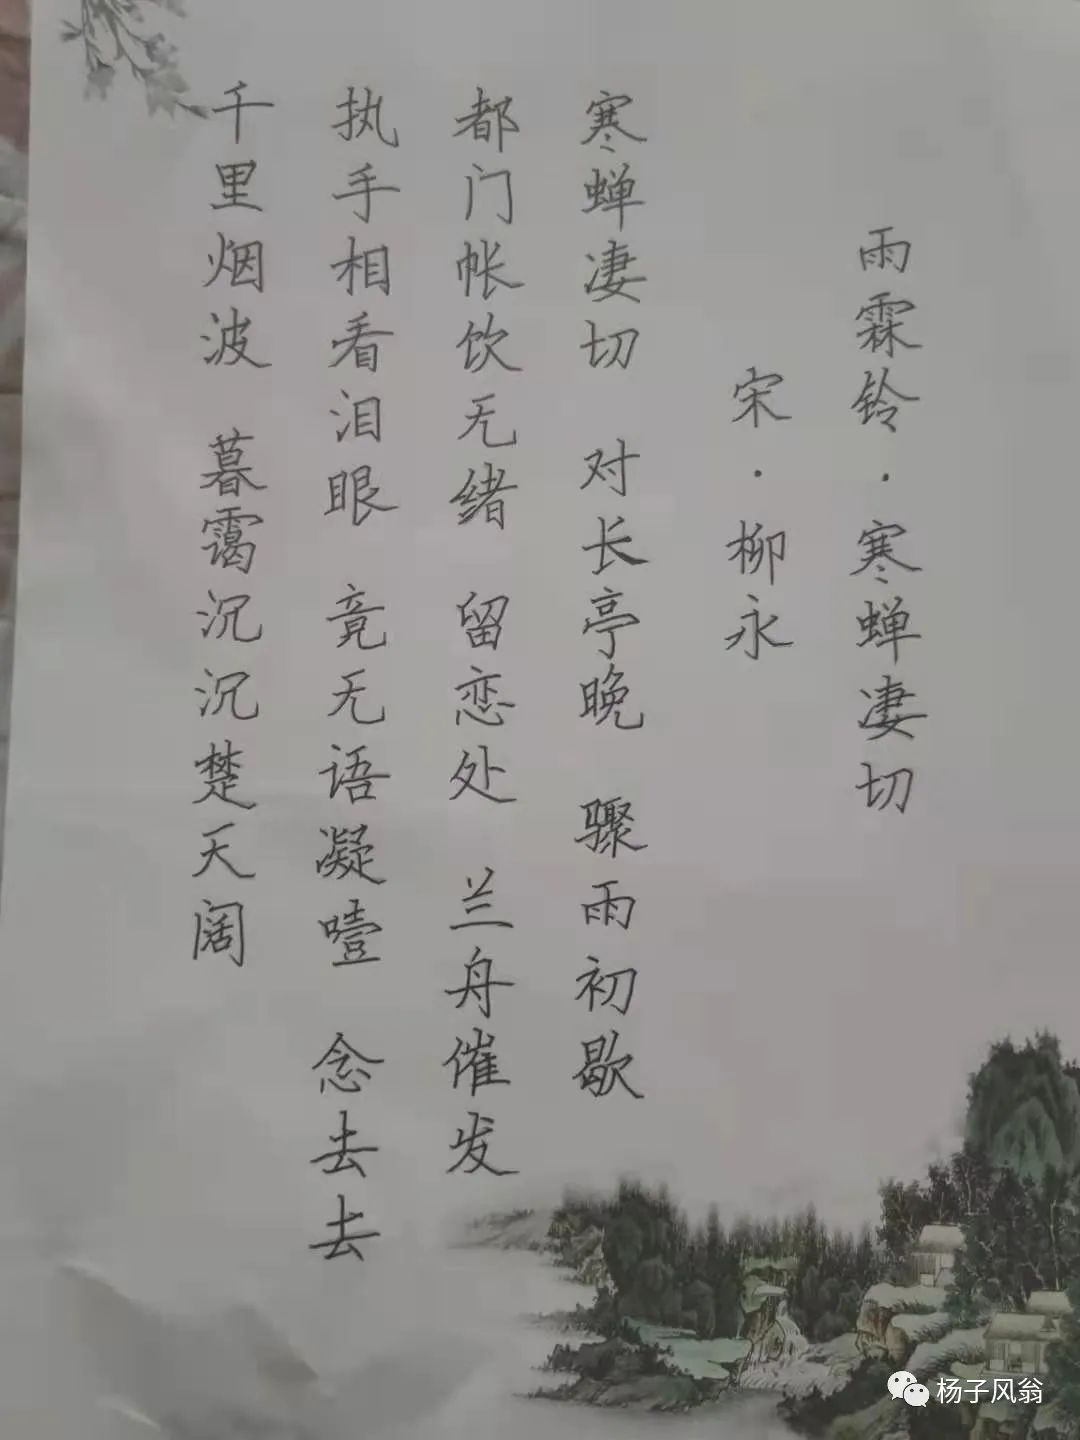 雨霖铃·寒蝉凄切
宋·柳永
寒蝉凄切 对长亭晚 骤雨初歇
都门帐饮无绪 留恋处 兰舟催发
执手相看泪眼 竟无语凝噎
念去去
千里烟波 暮霭沉沉楚天阔
杨子风翁